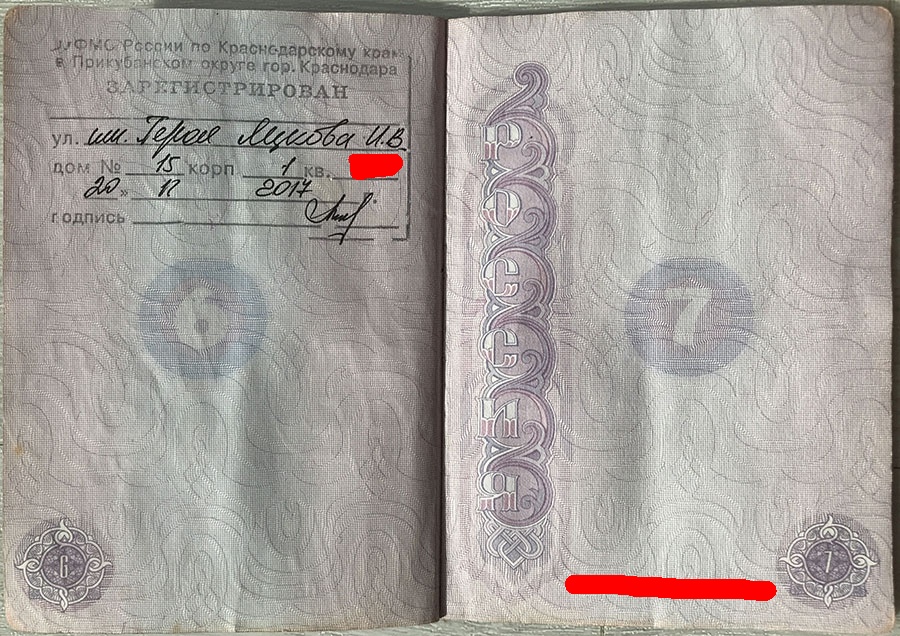 УФМС России по Краснодарскому краю
в Прикубанском округе гор. Краснодара
ЗАРЕГИСТРИРОВАН
ул. им. Героя Яцкова И.В.
дом № 15 корп 1 кв.
20 » 12 2017
подпись
6
6
РОССИЯ
7
7